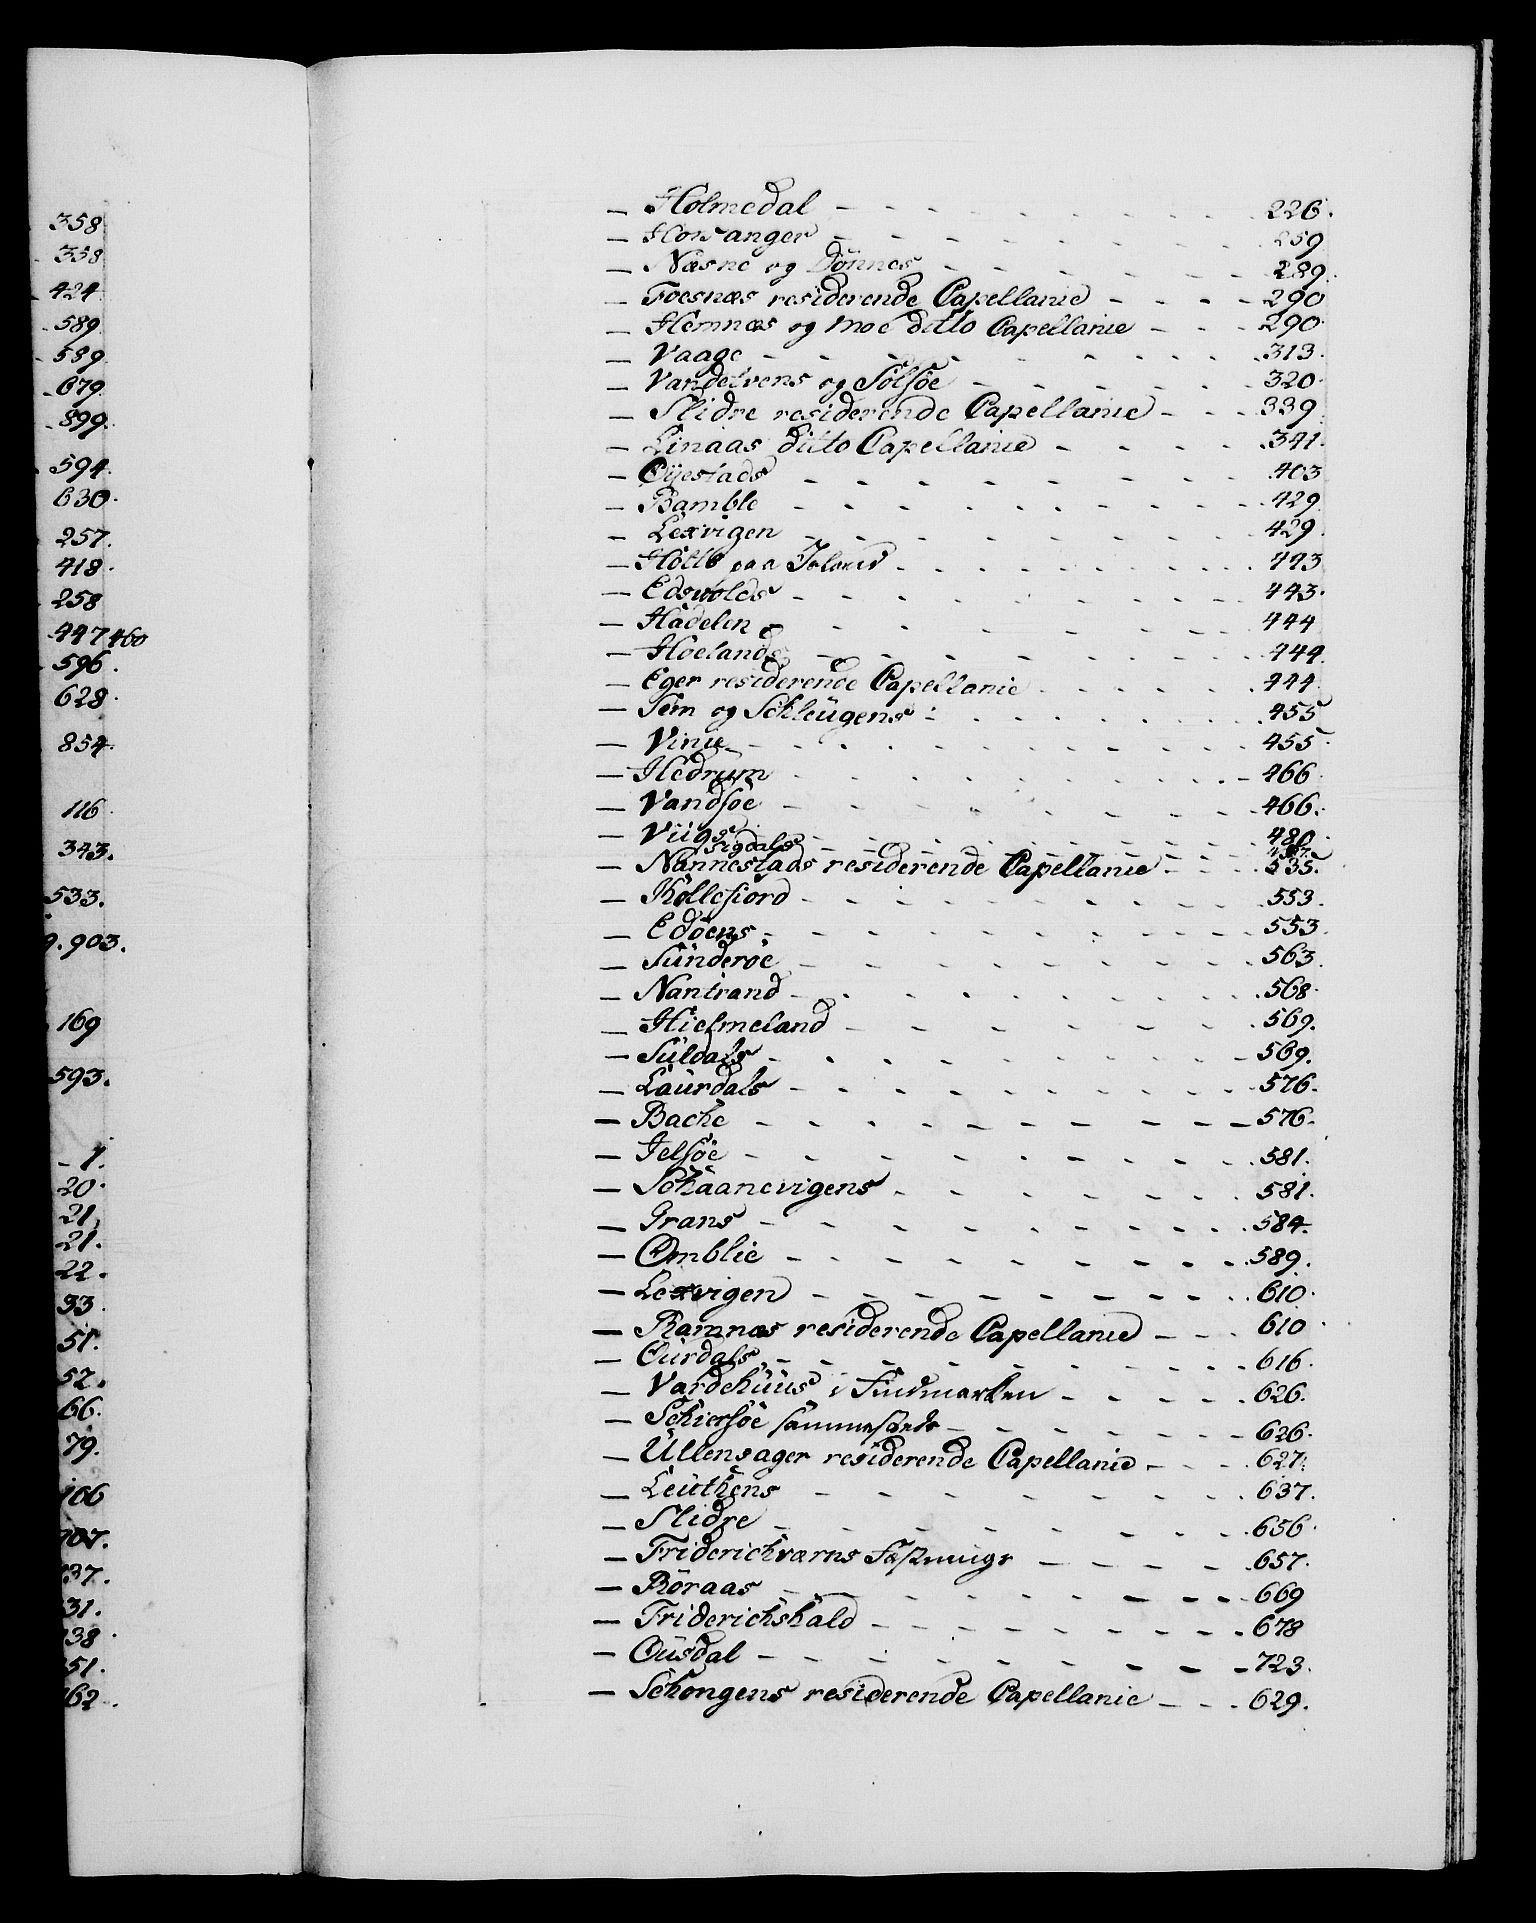 358
358
424
589
589
679
899
594
630
257
418
258
447 460
596
628
854
116
343
533
903
169
593
1
20
21
21
22
33
51
52
66
79
— Holmedal 226
— Horsanger 259
— Næsne og Dönnes 289
— Foesnæs residerende Capellanie 290
— Hemnæs og Moe ditto Capellanie 290
— Vaage 313
— Vandelvens og Sölsöe 320
— Slidre residerende Capellanie 339
— Linaas ditto Capellanie 341
— Öijestads 403
— Bamble 429
— Lexvigen 429
— Holtb paa Island 443
— Edsvolds 443
— Hadeln 444
— Höelands 444
— Eger residerende Capellanie 444
— Sem og Schleügens 455
— Vinie 455
— Hedrum 466
— Vandsöe 466
— Viigs 480
Sigdals
— Nannestads residerende Capellanie 535
— Kollefiord 553
— Edöens 553
— Sünderöe 563
— Nantrand 568
— Hielmeland 569
— Süldals 569
— Laurdals 576
— Backe 576
— Jelsöe 581
— Schaanevigens 581
— Grans 584
— Omblie 589
— Lexvigen 610
— Ramnæs residerende Capellanie 610
— Ourdals 616
— Vardehüüs i Findmarken 626
— Schiersöe sammesteds 626
— Üllensager residerende Capellanie 627
— Leüthens 637
— Slidre 656
— Friderichværns Fæstnings 657
— Röraas 669
— Friderichshald 678
— Ousdal 723
— Schongens residerende Capellanie 629